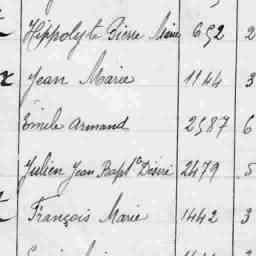 Hippolyte Pierre Marie 652 2
Jean Marie 1144 3
Emile Armand 2587 6
Julien Jean Bapt.te Désiré 2479 5
François Marie 1442 3